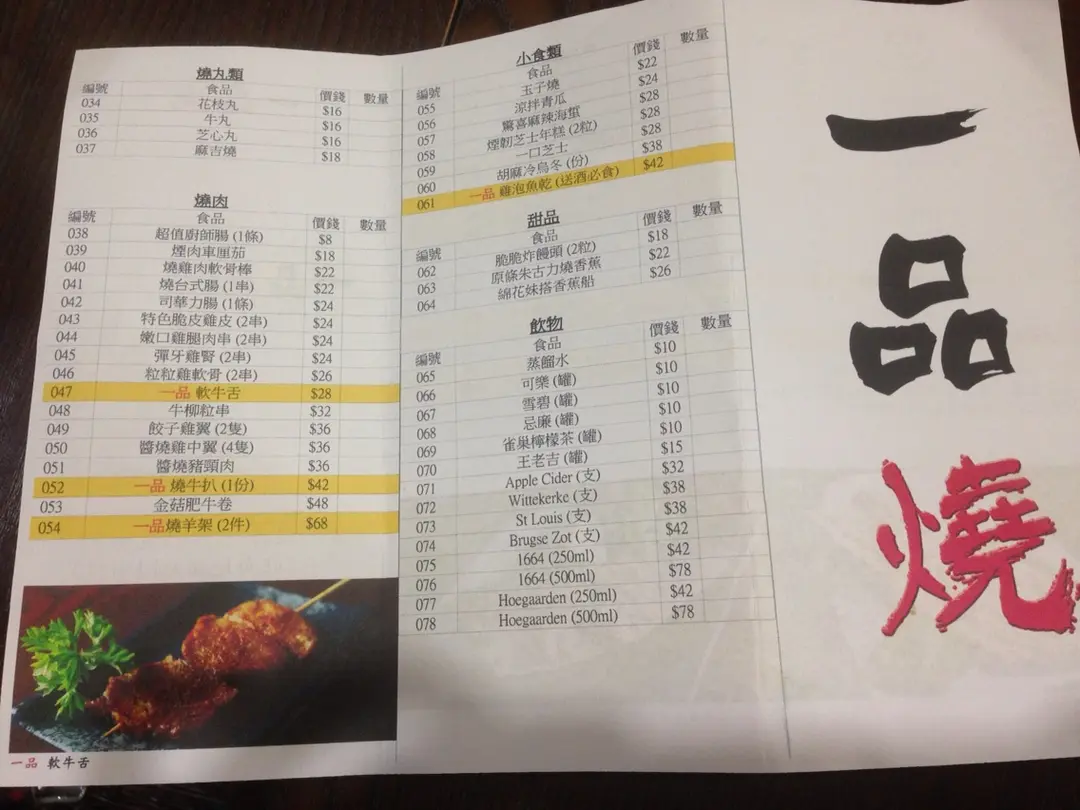 燒丸類
編號 食品 價錢 數量
034 花枝丸 $16
035 牛丸 $16
036 芝心丸 $16
037 麻吉燒 $18
燒肉
編號 食品 價錢 數量
038 超值廚師腸 (1條) $8
039 煙肉車厘茄 $18
040 燒雞肉軟骨棒 $22
041 燒台式腸 (1串) $22
042 司華力腸 (1條) $24
043 特色脆皮雞皮 (2串) $24
044 嫩口雞腿肉串 (2串) $24
045 彈牙雞腎 (2串) $24
046 粒粒雞軟骨 (2串) $26
047 一品 軟牛舌 $28
048 牛柳粒串 $32
049 餃子雞翼 (2隻) $36
050 醬燒雞中翼 (4隻) $36
051 醬燒豬頸肉 $36
052 一品 燒牛扒 (1份) $42
053 金菇肥牛卷 $48
054 一品燒羊架 (2件) $68
一品 軟牛舌
小食類
編號 食品 價錢 數量
055 玉子燒 $22
056 涼拌青瓜 $24
057 驚喜麻辣海蜇 $28
058 煙韌芝士年糕 (2粒) $28
059 一口芝士 $28
060 胡麻冷烏冬 (份) $38
061 一品 雞泡魚乾 (送酒必食) $42
甜品
編號 食品 價錢 數量
062 脆脆炸饅頭 (2粒) $18
063 原條朱古力燒香蕉 $22
064 綿花妹搭香蕉船 $26
飲物
編號 食品 價錢 數量
065 蒸餾水 $10
066 可樂 (罐) $10
067 雪碧 (罐) $10
068 忌廉 (罐) $10
069 雀巢檸檬茶 (罐) $10
070 王老吉 (罐) $15
071 Apple Cider (支) $32
072 Wittekerke (支) $38
073 St Louis (支) $38
074 Brugse Zot (支) $42
075 1664 (250ml) $42
076 1664 (500ml) $78
077 Hoegaarden (250ml) $42
078 Hoegaarden (500ml) $78
一品燒